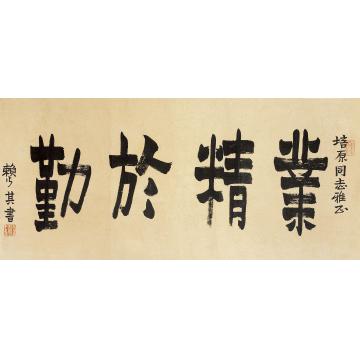 培原同志雅正
業精於勤
賴少其書